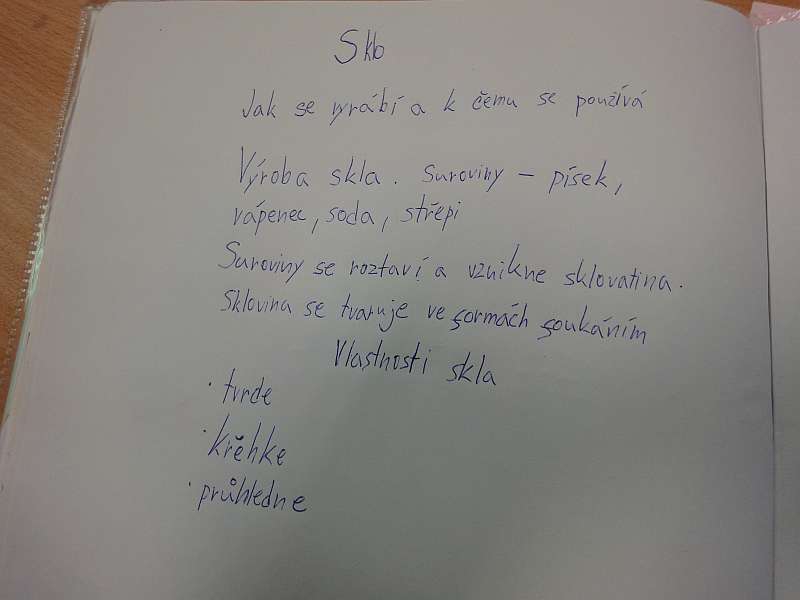 Sklo
Jak se vyrábí a k čemu se používá
Výroba skla. Suroviny – písek,
vápenec, soda, střepi
Suroviny se roztaví a vznikne sklovatina.
Sklovina se tvaruje ve formách foukáním
Vlastnosti skla
· tvrde
· křehke
· průhledne